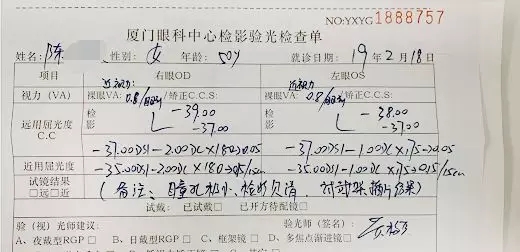 NO:YXYG1888757
厦门眼科中心检影验光检查单
姓名:陈 性别:女 年龄:50y 就诊日期:19年2月18日
项目 右眼OD 左眼OS
近视力 近视力
视力(VA) 裸眼VA:0.8/ /矫正C.C.S: 裸眼VA:0.8/ /矫正C.C.S:
远用屈光度 C.C 检影 -39.00 -37.00 检影 -38.00 -37.00
-37.00DS/-2.00DC×180→0.05 -37.00DS/-1.00DC×175→0.05
近用屈光度 -35.00DS/-2.00DC×180→0.15/15cm -35.00DS/-1.00DC×175→0.15/15cm
试镜结果 (备注:瞳孔极小、检影欠清,
□远□近
试戴: 已试戴□ 已开方待配镜□
验(视)光师建议: 验光师(签名):
A、夜戴型RGP□ B、日戴型RGP□ C、框架镜□ D、多焦点渐进镜□